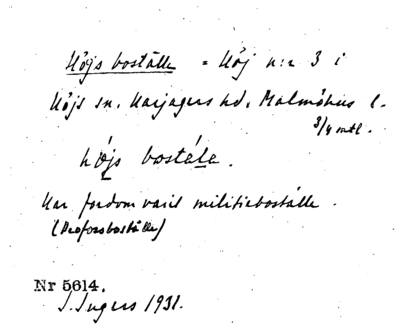 Höjs boställe = Höj n:r 3 i
Höjs sn. Harjagers hd. Malmöhus l.
3/4 mtl.
höjs bostéle.
Har fordom varit militieboställe.
(Profossboställe)
Nr 5614.
I. Ingers 1931.